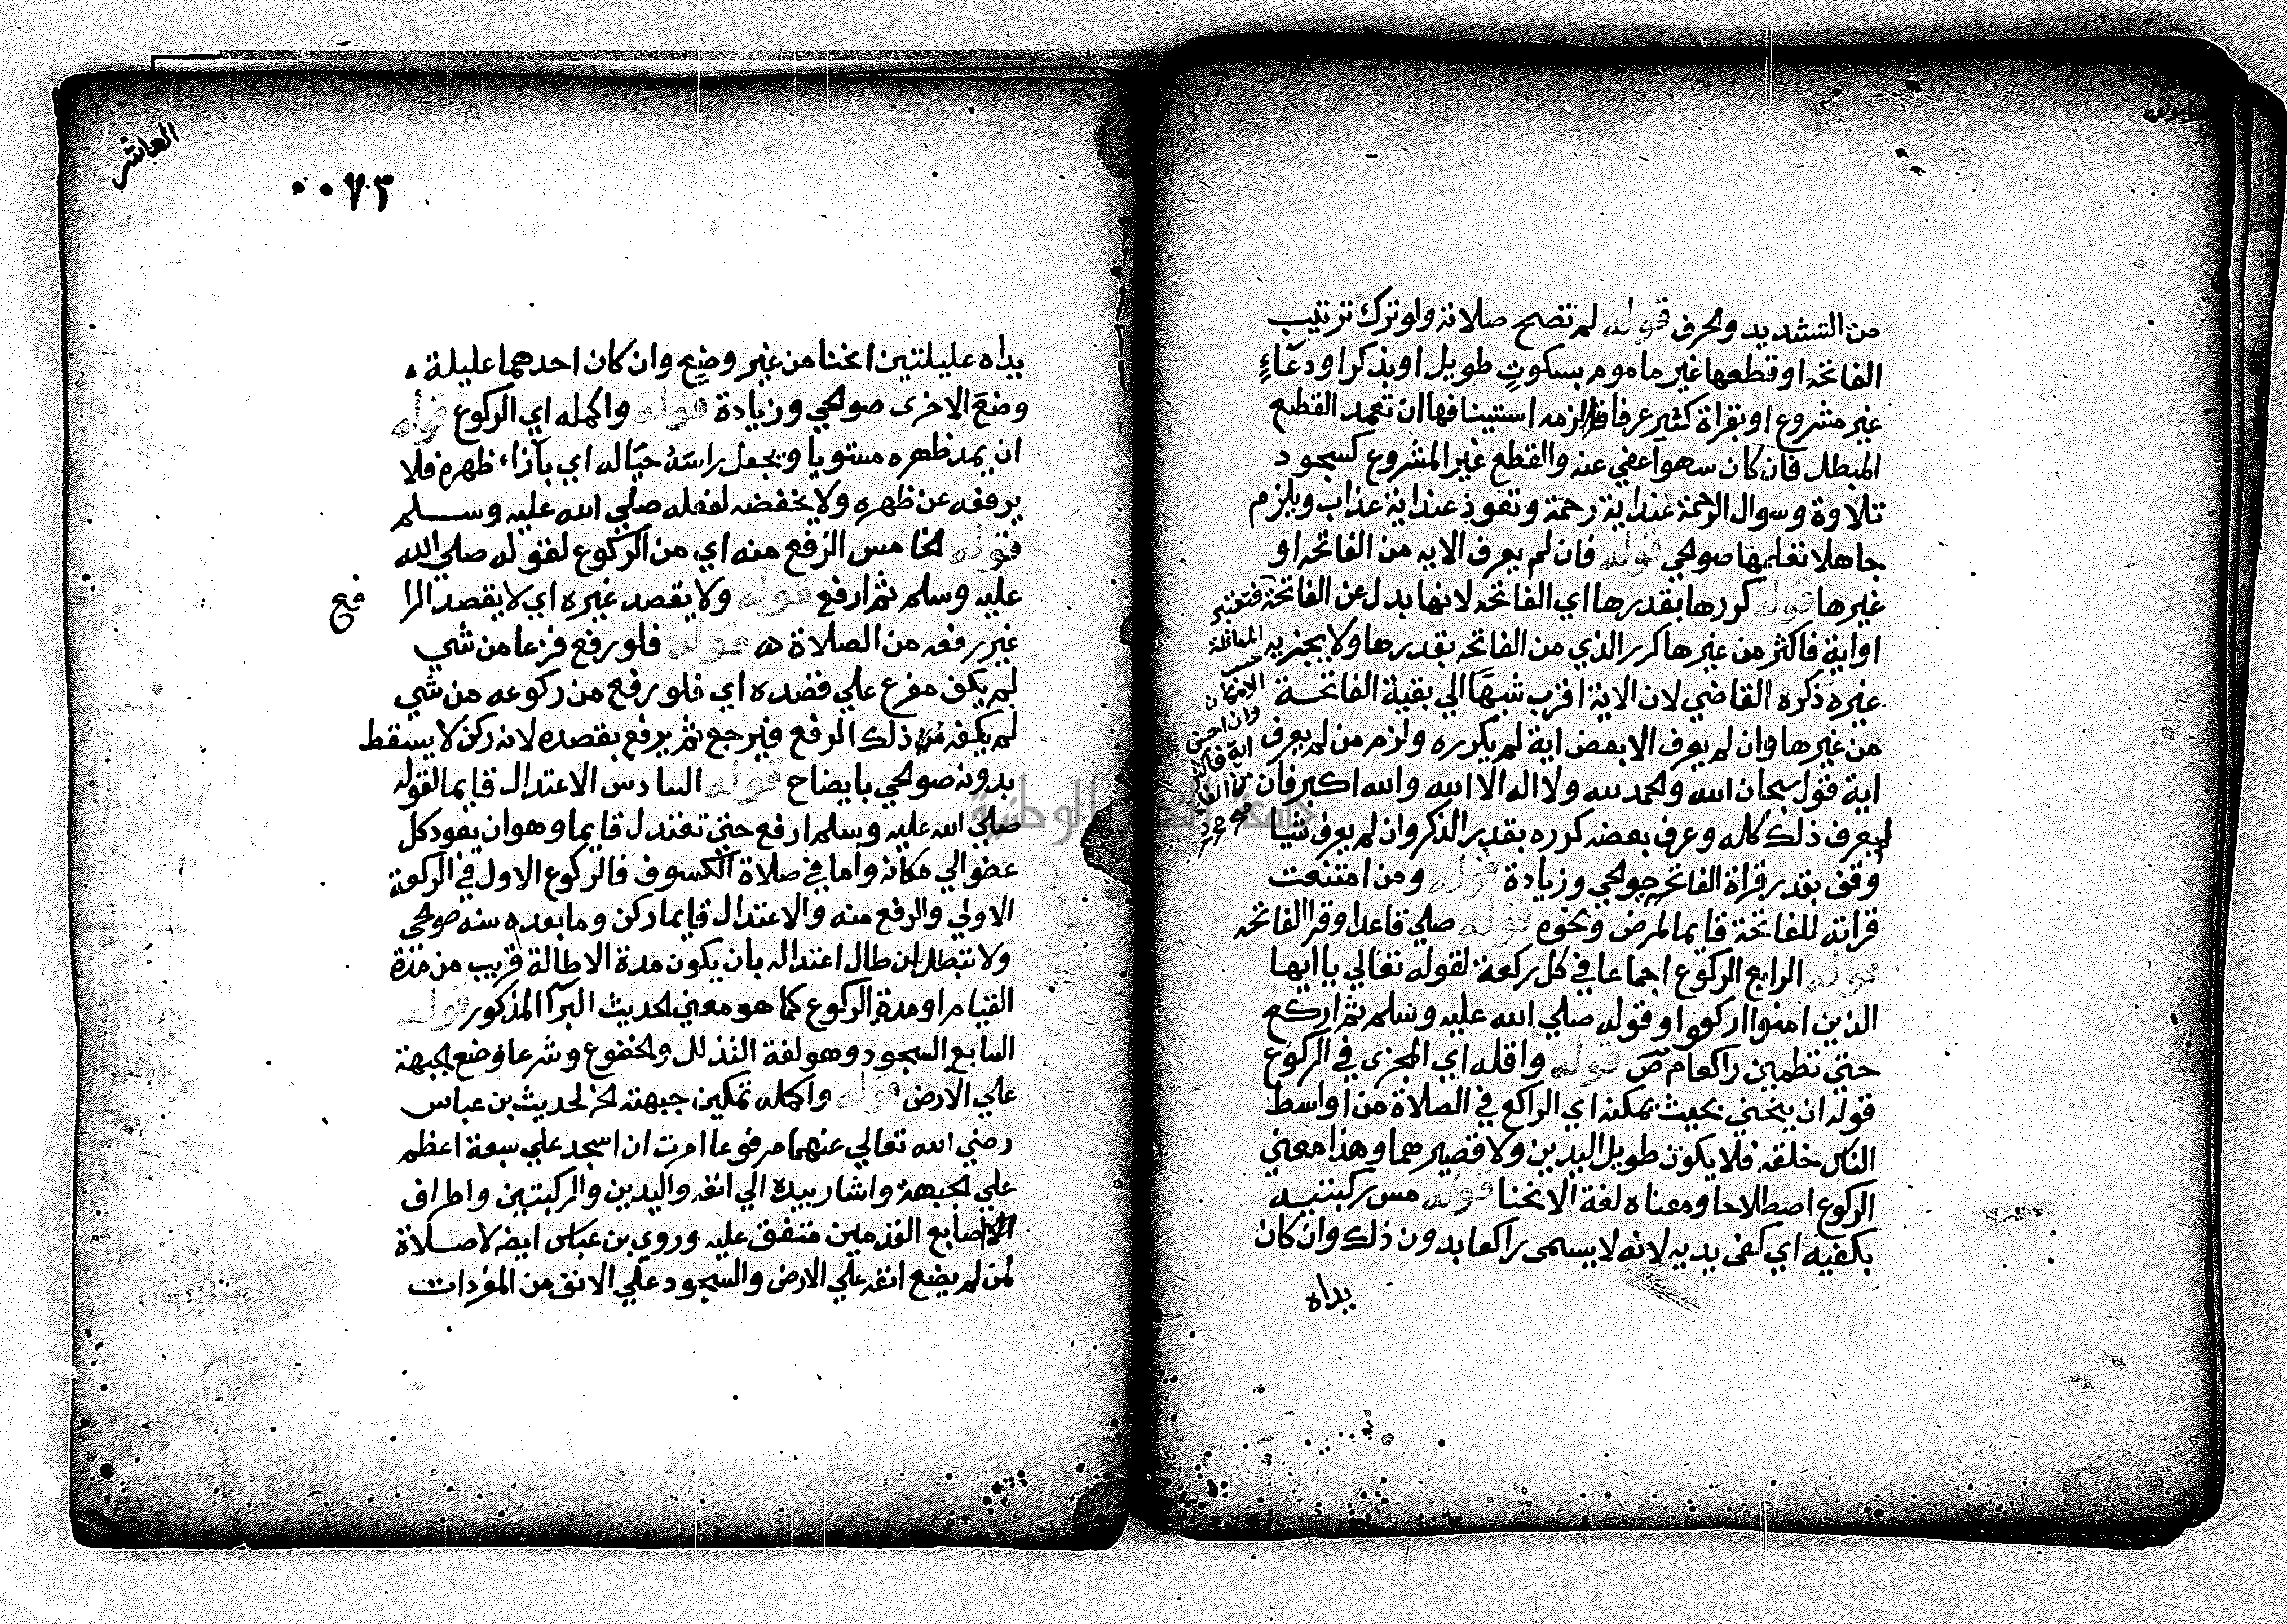 من التشديد والحرف قوله لم تصح صلاته ولو ترك ترتيب
الفاتحه او قطعها غير ماموم بسكوتٍ طويل او بذكر او دعاءٍ
غير مشروع او بقراة كثير عرفا لزمه استينافها ان تعمد القطع
المبطل فان كان سهوا عفي عنه والقطع غير المشروع كسجود
تلاوة وسوال الرحمة عند اية رحمة وتعوذ عند اية عذاب ويلزم
جاهلا تعلمها صوالحي قوله فان لم يعرف الا يه من الفاتحه او
غيرها قوله كررها بقدرها اي الفاتحه لانها بدل عن الفاتحة فتعتبر
المماثلة
حسب
الامكان
وان احسن
اية فاكثر
من الفاتحة
او اية فاكثر من غيرها كرر الذي من الفاتحه بقدرها ولا يجزيه
غيره ذكره القاضي لان الاية اقرب شبهًا الي بقية الفاتحــة
من غيرها وان لم يعرف الا بعض اية لم يكرره ولزم من لم يعرف
اية قول سبحان الله والحمد لله ولا اله الا الله والله اكبر فان
لم يعرف ذلك كله وعرف بعضه كرره بقدر الذكر وان لم يعرف شيا
وقف بقدر قراة الفاتحه صوالحي وزيادة قوله ومن امتنعت
قراته للفاتحة قايما لمرض ونحوه قوله صلي قاعدا وقرا الفاتحه
قوله الرابع الركوع اجماعا في كل ركعة لقوله تعالي يا ايها
الذين امنوا اركعوا وقوله صلي الله عليه وسلم ثم اركع
حتي تطمين راكعا م ص قوله واقله اي المجزى في الركوع
قوله ان ينحني بحيث يمكنه اي الراكع في الصلاة من اواسط
الناس خلقه فلا يكون طويل اليدين ولا قصيرهما وهذا معني
الركوع اصطلاحا ومعناه لغة الانحنا قوله مس ركبتيـه
بكفيه اي كفى يديه لانه لا يسمى راكعا بدون ذلك وان كان
يداه
العاشر
٠٠٧٣
يداه عليلتين انحنا من غير وضع وان كان احدهما عليلة
وضع الاخرى صوالحي وزيادة قوله واكمله اي الركوع قوله
ان يمد ظهره مستويا ويجعل راسَهُ حيَالَه اي بآزاء ظهره فلا
يرفعه عن ظهره ولا يخفضه لفعله صلي الله عليه وسـلم
قوله الخامس الرفع منه اي من الركوع لقوله صلي الله
عليه وسلم ثم ارفع قوله ولا يقصد غيره اي لا يقصد الرا فع
غير رفعه من الصلاة قوله فلو رفع فزعا من شي
لم يكف مفرع علي قصده اي فلو رفع من ركوعه من شي
لم يكفه ذلك الرفع فيرجع ثم يرفع بقصده لانه ركن لا يسقط
بدونه صوالحي بايضاح قوله السادس الاعتدال قايما لقوله
صلي الله عليه وسلم ارفع حتي تعتدل قايما وهو ان يعود كل
عضو الي مكانه واما في صلاة الكسوف فالركوع الاول في الركعة
الاولي والرفع منه والاعتدال قايما ركن وما بعده سنه صوالحى
ولا تبطل ان طال اعتداله بان يكون مدة الاطالة قريب من مدة
القيام او مدة الركوع كما هو معني لحديث البرآ المذكور قوله
السابع السجود وهو لغة التذلل والخضوع وشرعا وضع الجبهة
علي الارض قوله واكمله تمكين جبهته الخ لحديث بن عباس
رضي الله تعالي عنهما مرفوعا امرت ان اسجد علي سبعة اعظم
علي الجبهة واشار بيده الي انفه واليدين والركبتين واطراف
اصابع القدمين متفق عليه وروي بن عباس ايضه لا صــلاة
لمن لم يضع انفه علي الارض والسجود علي الانف من المفردات